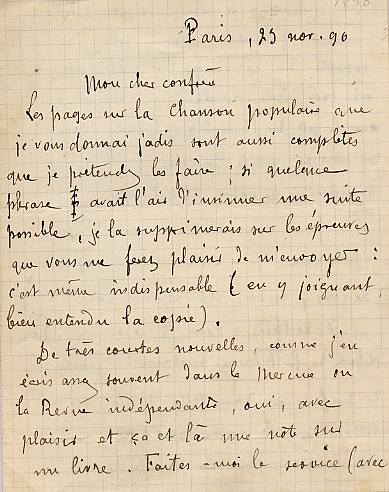 Paris, 23 nov. 90
Mon cher confrère
Les pages sur la Chanson populaire que
je vous donnai jadis sont aussi complètes
que je prétendis les faire ; si quelque
phrase avait l'air d'insinuer une suite
possible, je la supprimerais sur les épreuves
que vous me ferez plaisir de m'envoyer :
c'est même indispensable (en y joignant,
bien entendu la copie).
De très courtes nouvelles, comme j'en
écris assez souvent dans le Mercure ou
la Revue indépendante, oui, avec
plaisir et çà et là une note sur
un livre. Faites-moi le service (avec